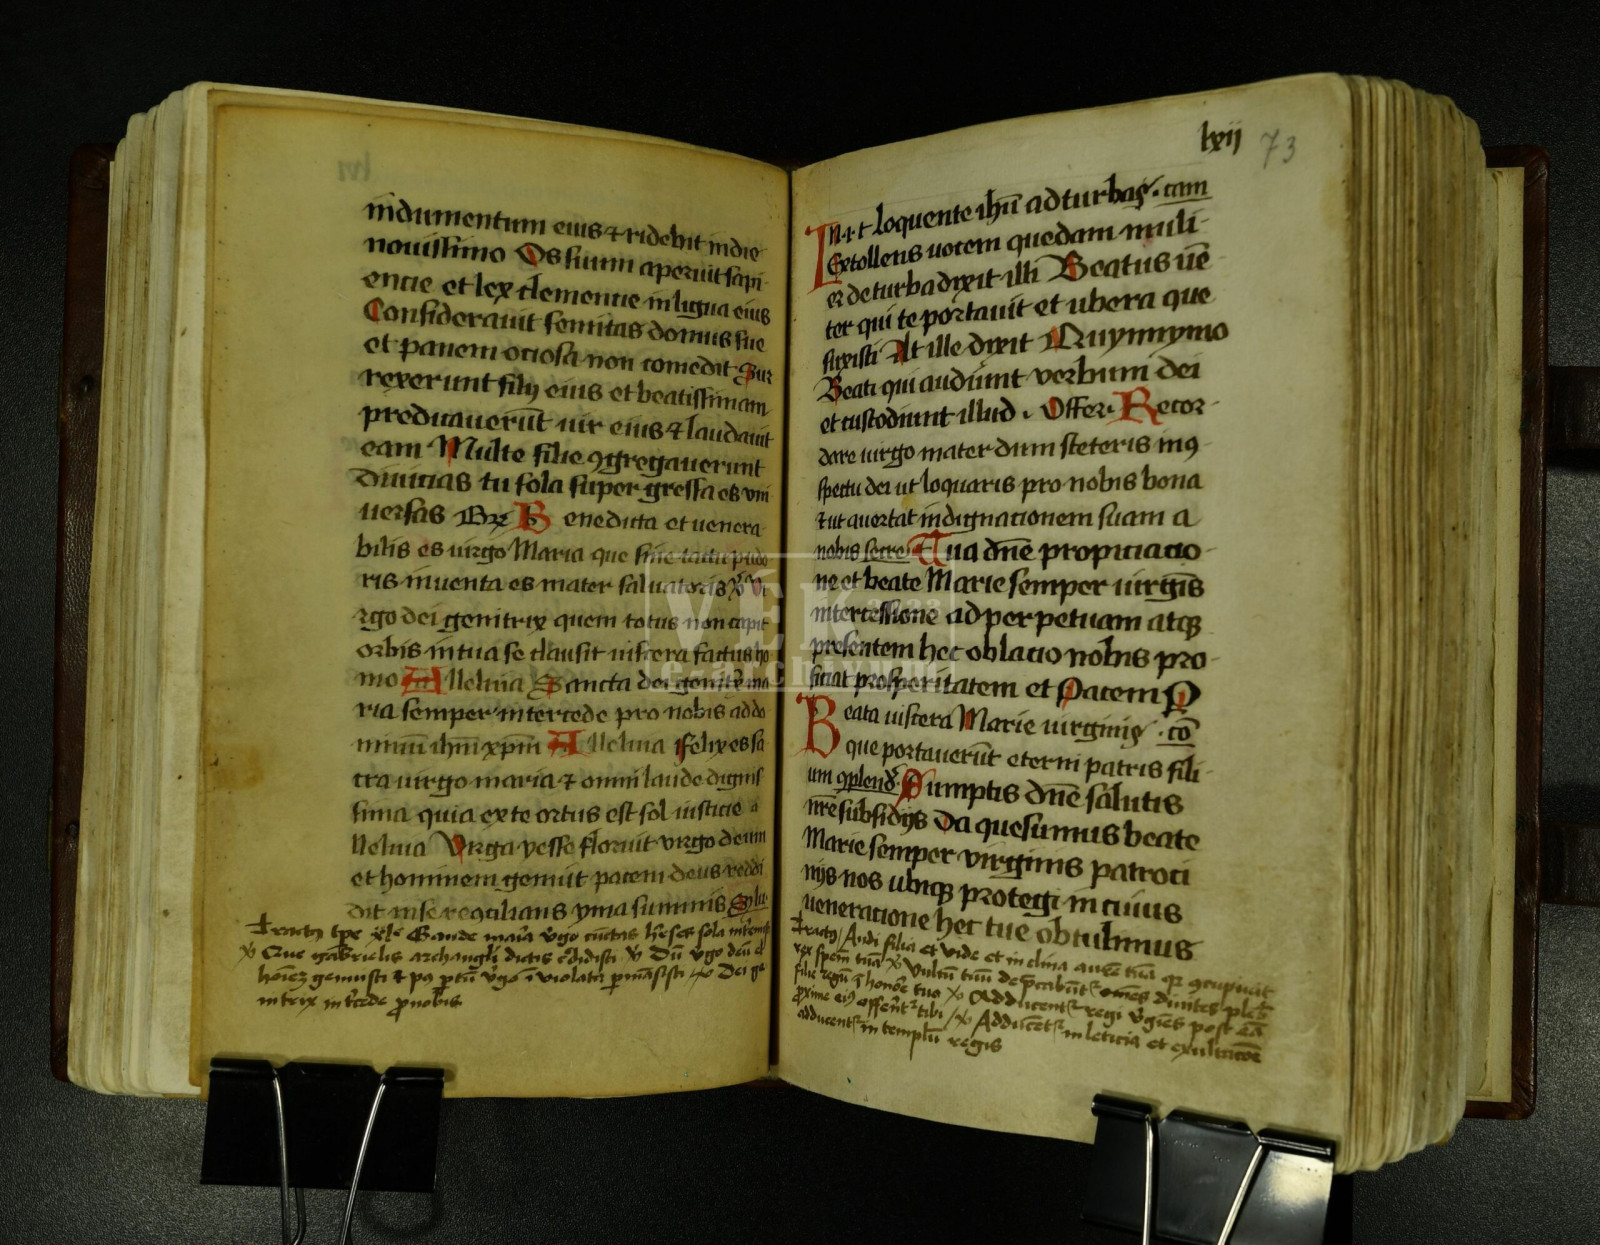 indumentum eius ⁊ ridebit in die
nouissimo Os suum aperuit sapi-
entie et lex clementie in ligua eius
Considerauit semitas domus sue
et panem ociosa non comedit Sur
rexerunt filij eius et beatissimam
predicauerūt uir eius ⁊ laudauit
eam Multe filie ꝯgregauerunt
Diuicias tu sola super gressa es vni
uersas Benedicta et uenera-
bilis es uirgo Maria que sine tactu pudo
ris inuenta es mater saluatoris ℣ Vi
rgo dei genitrix quem totus non capit
orbis in tua se clausit uiscera factus ho
mo Alleluia Sancta dei genitrix ma
ria semper intercede pro nobis ad do
minū ihm xpm Alleluia Felix es sa
cra uirgo maria ⁊ omni laude dignis
sima quia ex te ortus est sol iusticie a
lleluia Virga yesse floruit virgo deum
et hominem genuit pacem deus reddi
dit in se recꝯcilians yma summis
Tractꝰ Gaude maria v̄go cūctas hereses sola
℣ Que gabrielis archangli dictis ℣ Dū v̄go deū et
hoīez genuisti ⁊ pꝰ ptū v̄go īviolata ℣ Dei ge
nitrix in t̄cede pro nobis
lxii 73
In ⸱i⸱ t loquente ihū ad turbas. cam
Extollens uocem quedam muli-
er de turba dixit illi Beatus uē-
ter qui te portauit et ubera que
suxisti At ille dixit Quynnymo
Beati qui audiunt verbum dei
et custodiunt illud. Offer. Recor-
dare uirgo mater dum steteris in ꝯ-
spectu dei ut loquaris pro nobis bona
⁊ ut auertat indignacionem suam a
nobis secre Tua dn̄e propiciacio-
ne et beate Marie semper uirgis
intercessione ad perpetuam atqꝫ
presentem hec oblacio nobis pro-
ficiat prosperitatem et Pacem P
Beata uiscera Marie uirginis. cō
que portauerūt eterni patris fili-
um ꝯplend Sumptis dn̄e salutis
nr̄e subsidijs Da quesumus beate
Marie semper virginis patroci
nijs nos ubiqꝫ protegi in cuius
ueneracione hec tue obtulimus
Tractꝰ Audi filia et vide et inclina aurē tuā qr ꝯcupiuit
rex spem tuā ℣ Vultū tuū dep̄cabūt omēs diuites pleb
filie regū ī honore tuo ℣ Adducent regi v̄gies post eā
proxime eiꝰ offerēt tibi ℣ Adducēt in leticia et exultacōe
adducent in templū regis